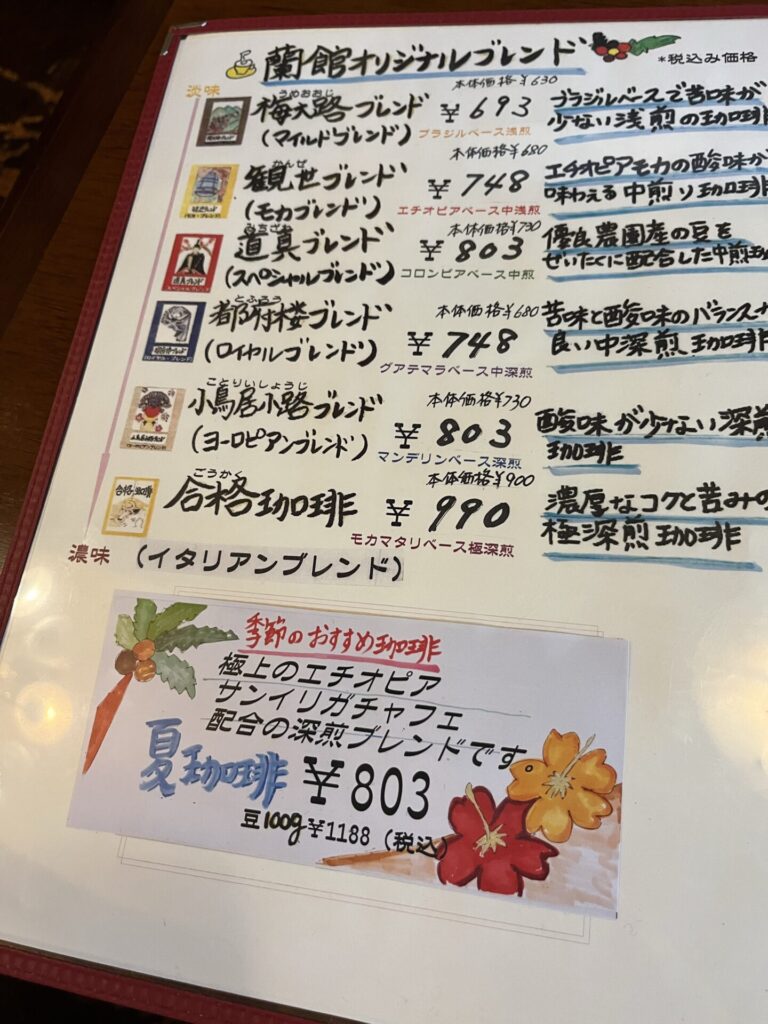 蘭館オリジナルブレンド
*税込み価格
淡味
本体価格¥630
うめおおじ
梅大路ブレンド ¥693
(マイルドブレンド)
ブラジルベース浅煎
ブラジルベースで苦味が
少ない浅煎の珈琲
本体価格¥680
かんぜ
観世ブレンド ¥748
(モカブレンド)
エチオピアベース中浅煎
エチオピアモカの酸味が
味わえる中煎り珈琲
本体価格¥730
道真ブレンド ¥803
(スペシャルブレンド)
コロンビアベース中煎
優良農園産の豆を
ぜいたくに配合した中煎
本体価格¥680
とふろう
都府楼ブレンド ¥748
(ロイヤルブレンド)
グアテマラベース中深煎
苦味と酸味のバランス
良い中深煎珈琲
本体価格¥730
ことりいしょうじ
小鳥居小路ブレンド ¥803
(ヨーロピアンブレンド)
マンデリンベース深煎
酸味が少ない深煎
珈琲
本体価格¥900
ごうかく
合格珈琲 ¥990
モカマタリベース極深煎
濃厚なコクと苦みの
極深煎珈琲
濃味
(イタリアンブレンド)
季節のおすすめ珈琲
極上のエチオピア
サンイリガチャフェ
配合の深煎ブレンドです
夏珈琲 ¥803
豆100g¥1188(税込)